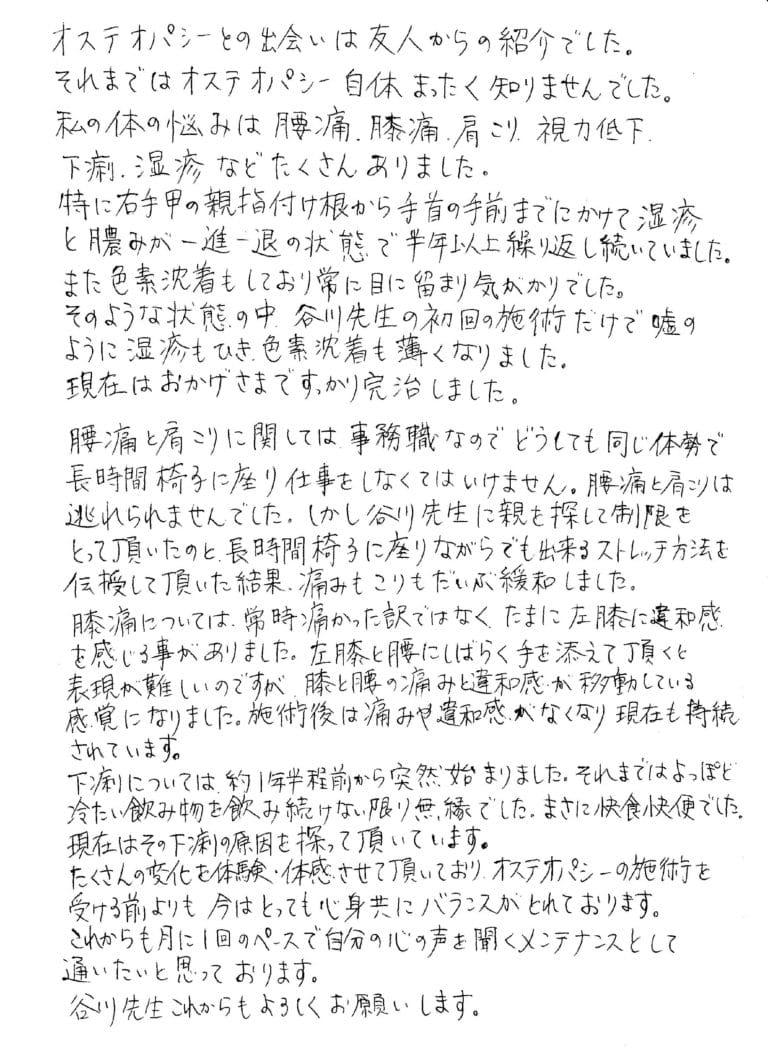 オステオパシーとの出会いは友人からの紹介でした。
それまではオステオパシー自体まったく知りませんでした。
私の体の悩みは腰痛、膝痛、肩こり、視力低下、
下痢、湿疹などたくさんありました。
特に右手甲の親指付け根から手首の手前までにかけて湿疹
と膿みが一進一退の状態で半年以上繰り返し続いていました。
また色素沈着もしており常に目に留まり気がかりでした。
そのような状態の中、谷川先生の初回の施術だけで嘘の
ように湿疹もひき、色素沈着も薄くなりました。
現在はおかげさまですっかり完治しました。
腰痛と肩こりに関しては、事務職なのでどうしても同じ体勢で
長時間椅子に座り仕事をしなくてはいけません。腰痛と肩こりは
逃れられませんでした。しかし谷川先生に親を探して制限を
とって頂いたのと、長時間椅子に座りながらでも出来るストレッチ方法を
伝授して頂いた結果、痛みもこりもだいぶ緩和しました。
膝痛については、常時痛かった訳ではなく、たまに左膝に違和感
を感じる事がありました。左膝と腰にしばらく手を添えて頂くと
表現が難しいのですが、膝と腰の痛みと違和感が移動している
感覚になりました。施術後は痛みや違和感がなくなり現在も持続
されています。
下痢については、約1年半程前から突然始まりました。それまではよっぽど
冷たい飲み物を飲み続けない限り無縁でした。まさに快食快便でした。
現在はその下痢の原因を探って頂いています。
たくさんの変化を体験・体感させて頂いており、オステオパシーの施術を
受ける前よりも今はとっても心身共にバランスがとれております。
これからも月に1回のペースで自分の心の声を聞くメンテナンスとして
通いたいと思っております。
谷川先生これからもよろしくお願いします。